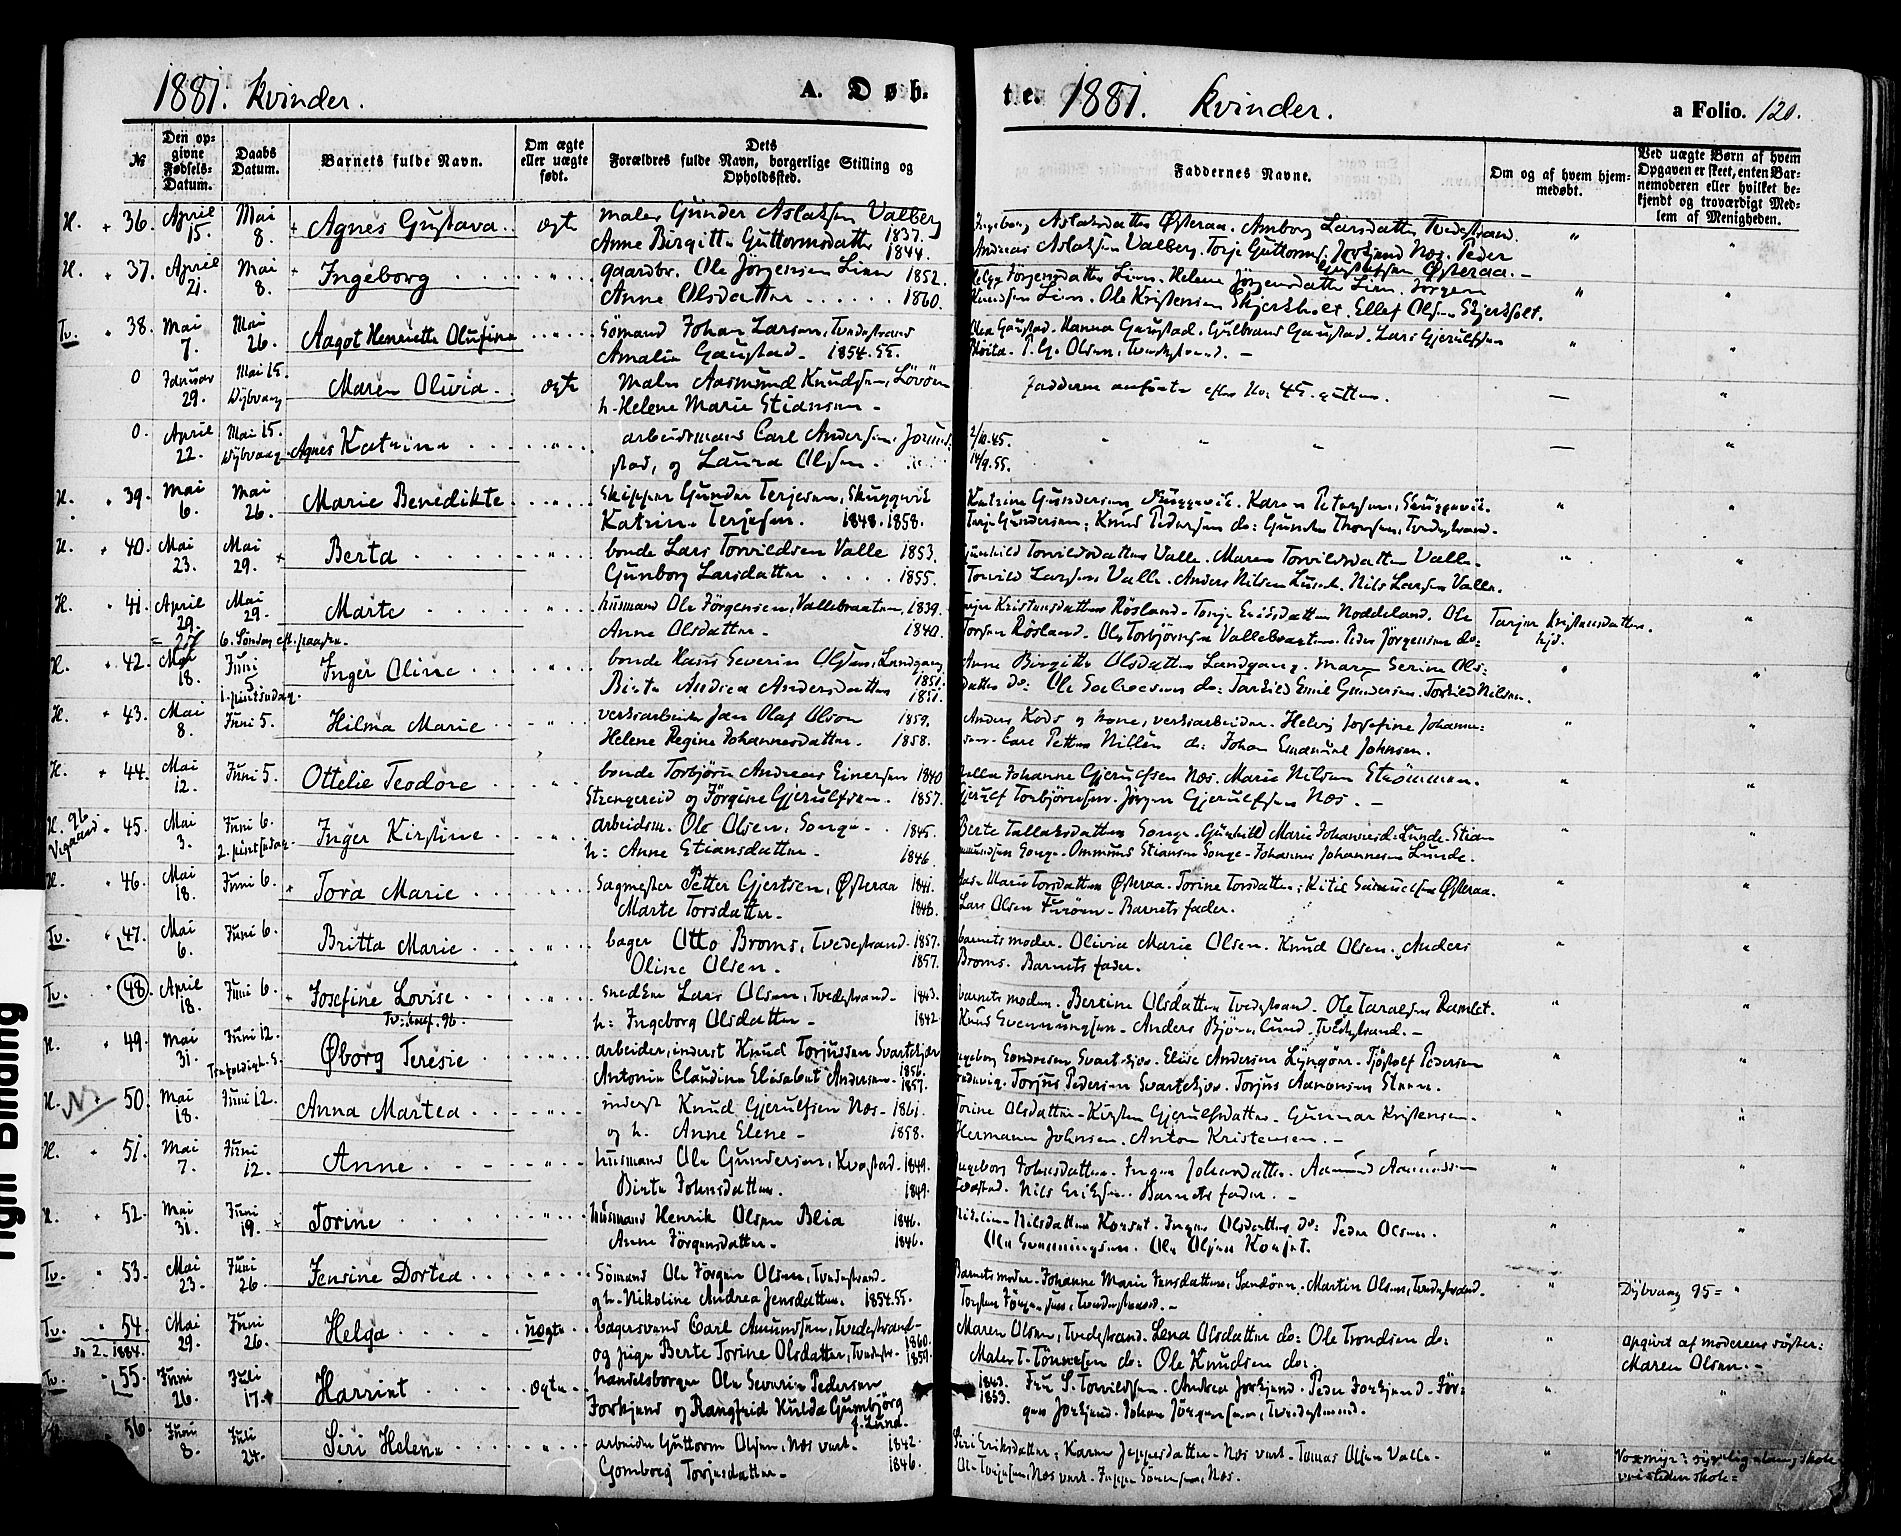 1881. Kvinder.
A. Døb-
te. 1881. Kvinder.
a Folio. 120.
№
Den op-
givne
Fødsels-
Datum.
Daabs
Datum.
Barnets fulde Navn.
Om ægte
eller uægte
født.
Dets
Forældres fulde Navn, borgerlige Stilling og
Opholdssted.
Faddernes Navne.
Om og af hvem hjem-
medøbt.
Ved uægte Børn af hvem
Opgaven er skeet, enten Bar-
nemoderen eller hvilket be-
kjendt og troværdigt Med-
lem af Menigheden.
H. 36. April 15. Mai 8. Agnes Gustava. ægte maler Gunder Aslaksen Valberg 1837.
Anne Birgitte Guttormsdatter 1844.
Ingeborg Aslaksdatter Østeraa. Amborg Larsdatter Tvedestrand.
Andreas Aslaksen Valberg. Terje Guttorms. Peder
Østeraa. -
H. 37. April 21. Mai 8. Ingeborg gaardbr. Ole Jørgensen Lien 1852.
Anne Olsdatter 1860.
Jørgensdatter Lien. Helene Jørgensdatter Lien. Jørgen
Knudsen Lien. Ole Kristensen Skjerkholt. Ellef Olsen Skjerkholt.
Tv. 38. Mai 7. Mai 26. Aagot Henriette Olufine Sømand Johan Larsen, Tvedestrand
Amalie Gaustad. 1854. 55.
Gaustad. Hanna Gaustad. Gulbrand Gaustad. Lars Gjerulfsen
P. G. Olsen, Tvedestrand. -
0 Januar 29. Mai 15. Dybvaag Maren Olivia. ægte Maler Aasmund Knudsen, Løvøen
h. Helene Marie Stiansen -
Faddere anførte efter No. 45. gutter.
0. April 22. Mai 15. Dybvaag Agnes Katrine arbeidsmand Carl Andersen
stad, og Laura Olsen.
2/10. 45.
14/9. 55.
H. 39. Mai 6. Mai 26. Marie Benedikte Skipper Gunder Terjesen, Skuggevik
Katrine Terjesen. 1848. 1858.
Katrine Gundersen Skuggevik. Karen Petersen, Skuggevik.
Terje Gundersen; Knud Pedersen do: Gunder Thomsen, Tvedestrand.
H. 40. Mai 23. Mai 29. Berta bonde Lars Torvildsen Valle 1853.
Gunborg Larsdatter 1855.
Gunhild Torvildsdatter Valle. Maren Torvildsdatter Valle.
Torvild Larsen Valle. Anders Nilsen Lunde. Nils Larsen Valle.
H. 41. April 29. Mai 29. Marte husmand Ole Jørgensen, Vallebraaten, 1839.
= 27 6. Søndag eft. paaske. Anne Olsdatter - 1840.
Kristensdatter Røsland. Tonje Eriksdatter Noddeland. Ole
Torsen Røsland. Ole Torbjørnsen Vallebraaten. Peder Jørgensen do.
Tarjer Kristensdatter. hjd.
H. 42. Mai 18. Juni 5 1. pintsedag. Inger Oline bonde Hans Severin Olsen, Landgang 1851.
Birte Andrea Andersdatter 1851.
Anne Birgitte Olsdatter Landgang. Maren Serine Ols-
datter do: Ole do: Tarkild Emil Gundersen. Torkild Nilsen.
H. 43. Mai 8. Juni 5. Hilma Marie verksarbeider Jan Olaf Olson 1859.
Helene Regine Johannesdatter. 1858.
Anders Kods og kone, verksarbeider. Helvig Josefine Johanne-
sen. Carl Petter Nillén do: Johan Emanuel Johnsen.
H. 44. Mai 12. Juni 5. Ottelie Teodore bonde Torbjørn Andreas Einersen 1840
Strengereid og Jørgine Gjerulfsen. 1857.
Johanne Gjerulfsen Næs. Marie Nilsen Strømmen.
Gjerulf Torbjørnsen. Jørgen Gjerulfsen Næs. -
H. 96 Vegaard 45. Mai 3. Juni 6. 2. pintsedag. Inger Kirstine arbeidsm. Ole Olsen, Songe. 1845.
h: Anne Stiansdatter. 1846.
Berte Tallaksdatter Songe. Gunhild Marie Johannesd. Lunde. Stian
Songe. Ommund Stiansen Songe. Johannes Johannesen Lunde.
H. 46. Mai 18. Juni 6. Tora Marie Sagmester Petter Gjertsen, Østeraa 1841.
Marte Torsdatter. 1846.
Marie Torsdatter Østeraa. Torine Torsdatter; Kitil Samuelsen Østeraa.
Lars Olsen Furøen. Barnets fader.
Tv. 47. Mai 6. Juni 6. Britta Marie bager Otto Broms, Tvedestrand. 1857.
Oline Olsen. 1857.
barnets moder. Olivia Marie Olsen. Knud Olsen. Anders
Broms. Barnets fader.
Tv. 48. April 18. Juni 6. Josefine Lovise snedker Lars Olsen, Tvedestrand. 1843.
Tv: konf. 96. h: Ingeborg Olsdatter - 1842
barnets moder. Bertine Olsdatter Tvedestrand. Ole Taraldsen Ramlet.
Knud Evenmungsen. Anders Bjørn Lund, Tvedestrand. -
H. 49. Mai 31. Juni 12. Trefoldigh. S. Øborg Teresie arbeider, inderst Knud Torjussen Svartekjær 1856.
Antonia Claudina Elisabet Andersen. 1857.
Ingeborg Sondresen Svartekjær. Elise Andersen Lyngør. Tjøstolf Pedersen
Torjus Pedersen Svartekjær. Torjus Aanonsen Steen.
H. N. 50. Mai 18. Juni 12. Anna Martea inderst Knud Gjerulfsen Næs - 1861.
og h. Anne Elene - 1858.
Torine Olsdatter. Kirsten Gjerulfsdatter. Gunnar Kristensen.
Hermann Johnsen. Anton Kristensen. -
H. 51. Mai 7. Juni 12. Anne husmand Ole Gundersen, Kvastad. 1849.
Birte Johnsdatter. 1849.
Ingeborg Johnsdatter. Inger Johnsdatter. Aamund Aamundsen
Kvastad. Nils Eriksen. Barnets fader. -
H. 52. Mai 31. Juni 19. Torine husmand Henrik Olsen Blia 1846.
Anne Jørgensdatter. 1846.
Nilsdatter Konset. Inger Olsdatter do: Peder Olsen.
Ole Evenmungsen. Ole Olsen Konset.
Tv. 53. Mai 23. Juni 26. Jensine Dortea Sømand Ole Jørgen Olsen, Tvedestrand.
og h. Nikoline Andrea Jensdatter. 1854.55.
Barnets moder. Johanne Marie Jensdatter, Sandøen. Martin Olsen, Tvedestrand.
Torsten Jørgensen, Tvedestrand. -
Dybvaag 95 =
Tv. 54. Mai 29. Juni 26. Helga uægte bagersvend Carl Amundsen, Tvedestrand -
so 2. 1884. og pige Berte Torine Olsdatter, Tvedestr. 1860. 1859.
Maren Olsen, Tvedestrand. Lena Olsdatter do: Ole Trondsen do:
Maler T. Tønnesen do: Ole Knudsen do:
opgivet af moderens søster:
Maren Olsen. -
Tv. 55. Juni 26. Juli 17. Harriet ægte handelsborger Ole Severin Pedersen 1843.
Forkjend og Rangfrid Hulda Gumbjørg f. Lund. 1853.
Fru S. Torvildsen. Andrea Forkjend. Peder Forkjend. Jør-
gen Forkjend. Johan Jørgensen, Tvedestrand.
56. Juni 8. Juli 24. Siri Helene arbeider Guttorm Olsen, Næs verk. 1842.
Gomborg Torjusdatter - 1846.
Siri Eriksdatter; Karen Jeppesdatter. Næs verk. Tomas Olsen Valle.
Næs verk. Jeppe Næs.
Tight Binding